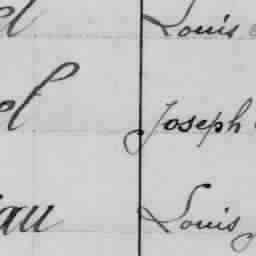 el Louis
el Joseph
iau Louis